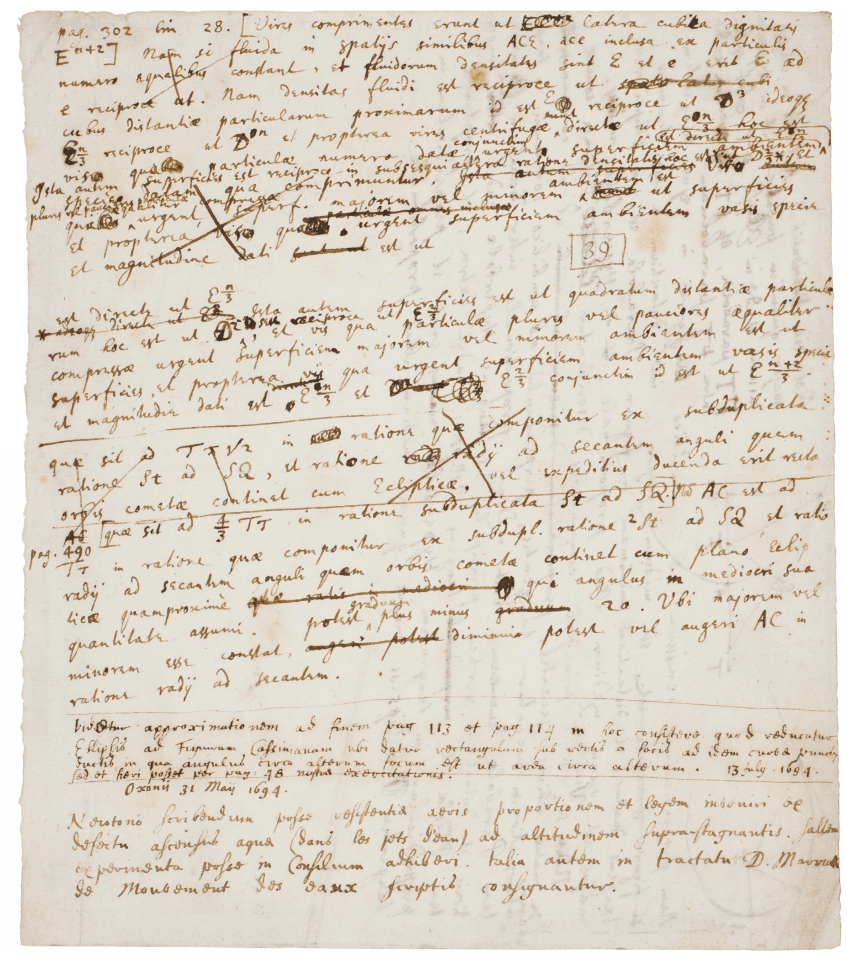 pag. 302 lin 28. [Vires comprimentes erunt ut latera cubica dignitatis
E^{n+2}] Nam si fluida in spatijs similibus ACE, ace inclusa ex particulis
numero æqualibus constant, et fluidorum densitates sint E et e erit E ad
e reciproce ut. Nam densitas fluidi est reciproce ut
cubus distantiæ particularum proximarum id est E reciproce ut D^3 ideoqe
E^{n/3} reciproce ut D^n et propterea vires centrifugæ directe ut E^{n/3} hoc est
vis qua particulæ numero datæ conjunctim urgent superficiem ambientem
Ista autem superficies est reciproce in subsesquialtera ratione densitatis
species qua comprimuntur. ambientem
plures urgent superf. majorem vel minorem ut superficies
et propterea vis qua urgent superficiem ambientem vasis specie
et magnitudine dati est ut
39
est directe ut E^{n/3} Ista autem superficies est ut quadratum distantiæ particula
rum hoc est ut D^2 reciproce ut E^{2/3}, et vis qua particulæ plures vel pauciores æqualiter
compressæ urgent superficiem majorem vel minorem ambientem est ut
superficies, et propterea vis qua urgent superficiem ambientem vasis specie
et magnitudine dati est E^{n/3} et E^{2/3} conjunctim id est ut E^{n+2/3}
quæ sit ad T x √2 in ratione quæ componitur ex subduplicata
ratione St ad SQ, et ratione radij ad secantem anguli quem
orbis cometæ continet cum Eclipticæ, vel expeditius ducenda erit recta
[quæ sit ad 4/3 TT in ratione subduplicata St ad SQ. AC est ad
pag. 490
TT in ratione quæ componitur ex subdupl. ratione 2St ad SQ et ratio
radij ad secantem anguli quem orbis cometæ continet cum plano Eclip
ticæ quamproximè qui angulus in mediocri sua
quantitate assumi. potest graduum plus minus 20. Ubi majorem vel
minorem esse constat, diminui potest vel augeri AC in
ratione radij ad secantem.
Videtur approximationem ad finem pag 113 et pag 114 in hoc consistere quod reducatur
Ellipsis ad Figuram Cassinianam ubi datur rectangulum sub rectis a focis ad idem curvæ punctu
ductis in qua angulus circa alterum focum est ut area circa alterum. 13 July. 1694.
sed et fieri posset per pag: 48 nostræ exercitationis.
Oxonii 31 Maij 1694.
Neutono scribendum posse resistentiæ aeris proportionem et legem inquiri ex
defectu ascensus aquæ (dans les jets d'eau) ad altitudinem supra-stagnantis. saltem
experimenta posse in Consilium adhiberi. talia autem in tractatu D. Marriott
de Mouvement des eaux scriptis consignantur.